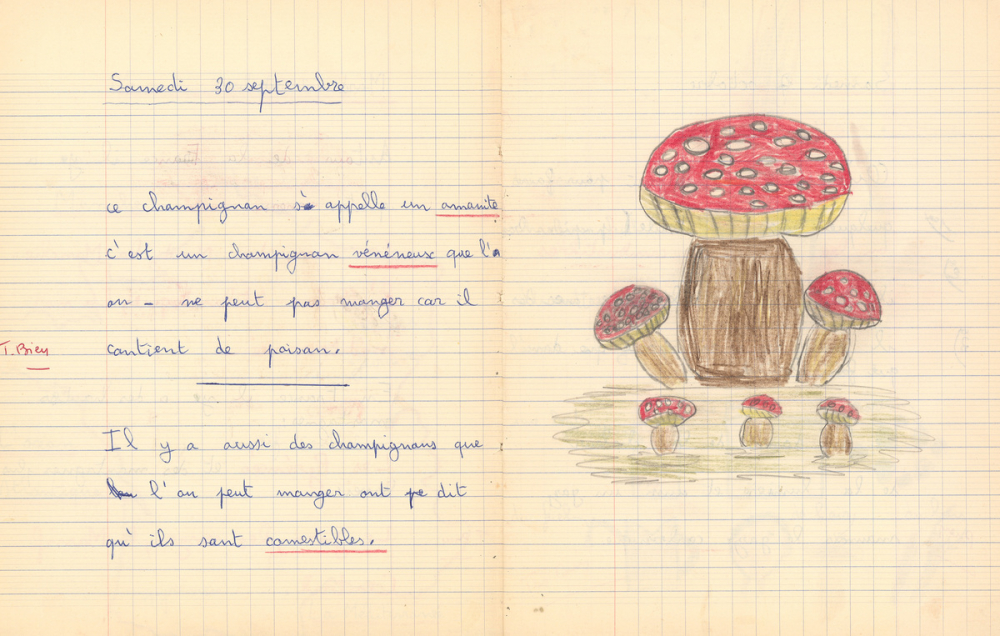 Samedi 30 septembre
ce champignon s'appelle un amanite
c'est un champignon vénéneux que l'
on - ne peut pas manger car il
T. Bien
contient de poison.
Il y a aussi des champignons que
l'on peut manger ont dit
qu'ils sont comestibles.